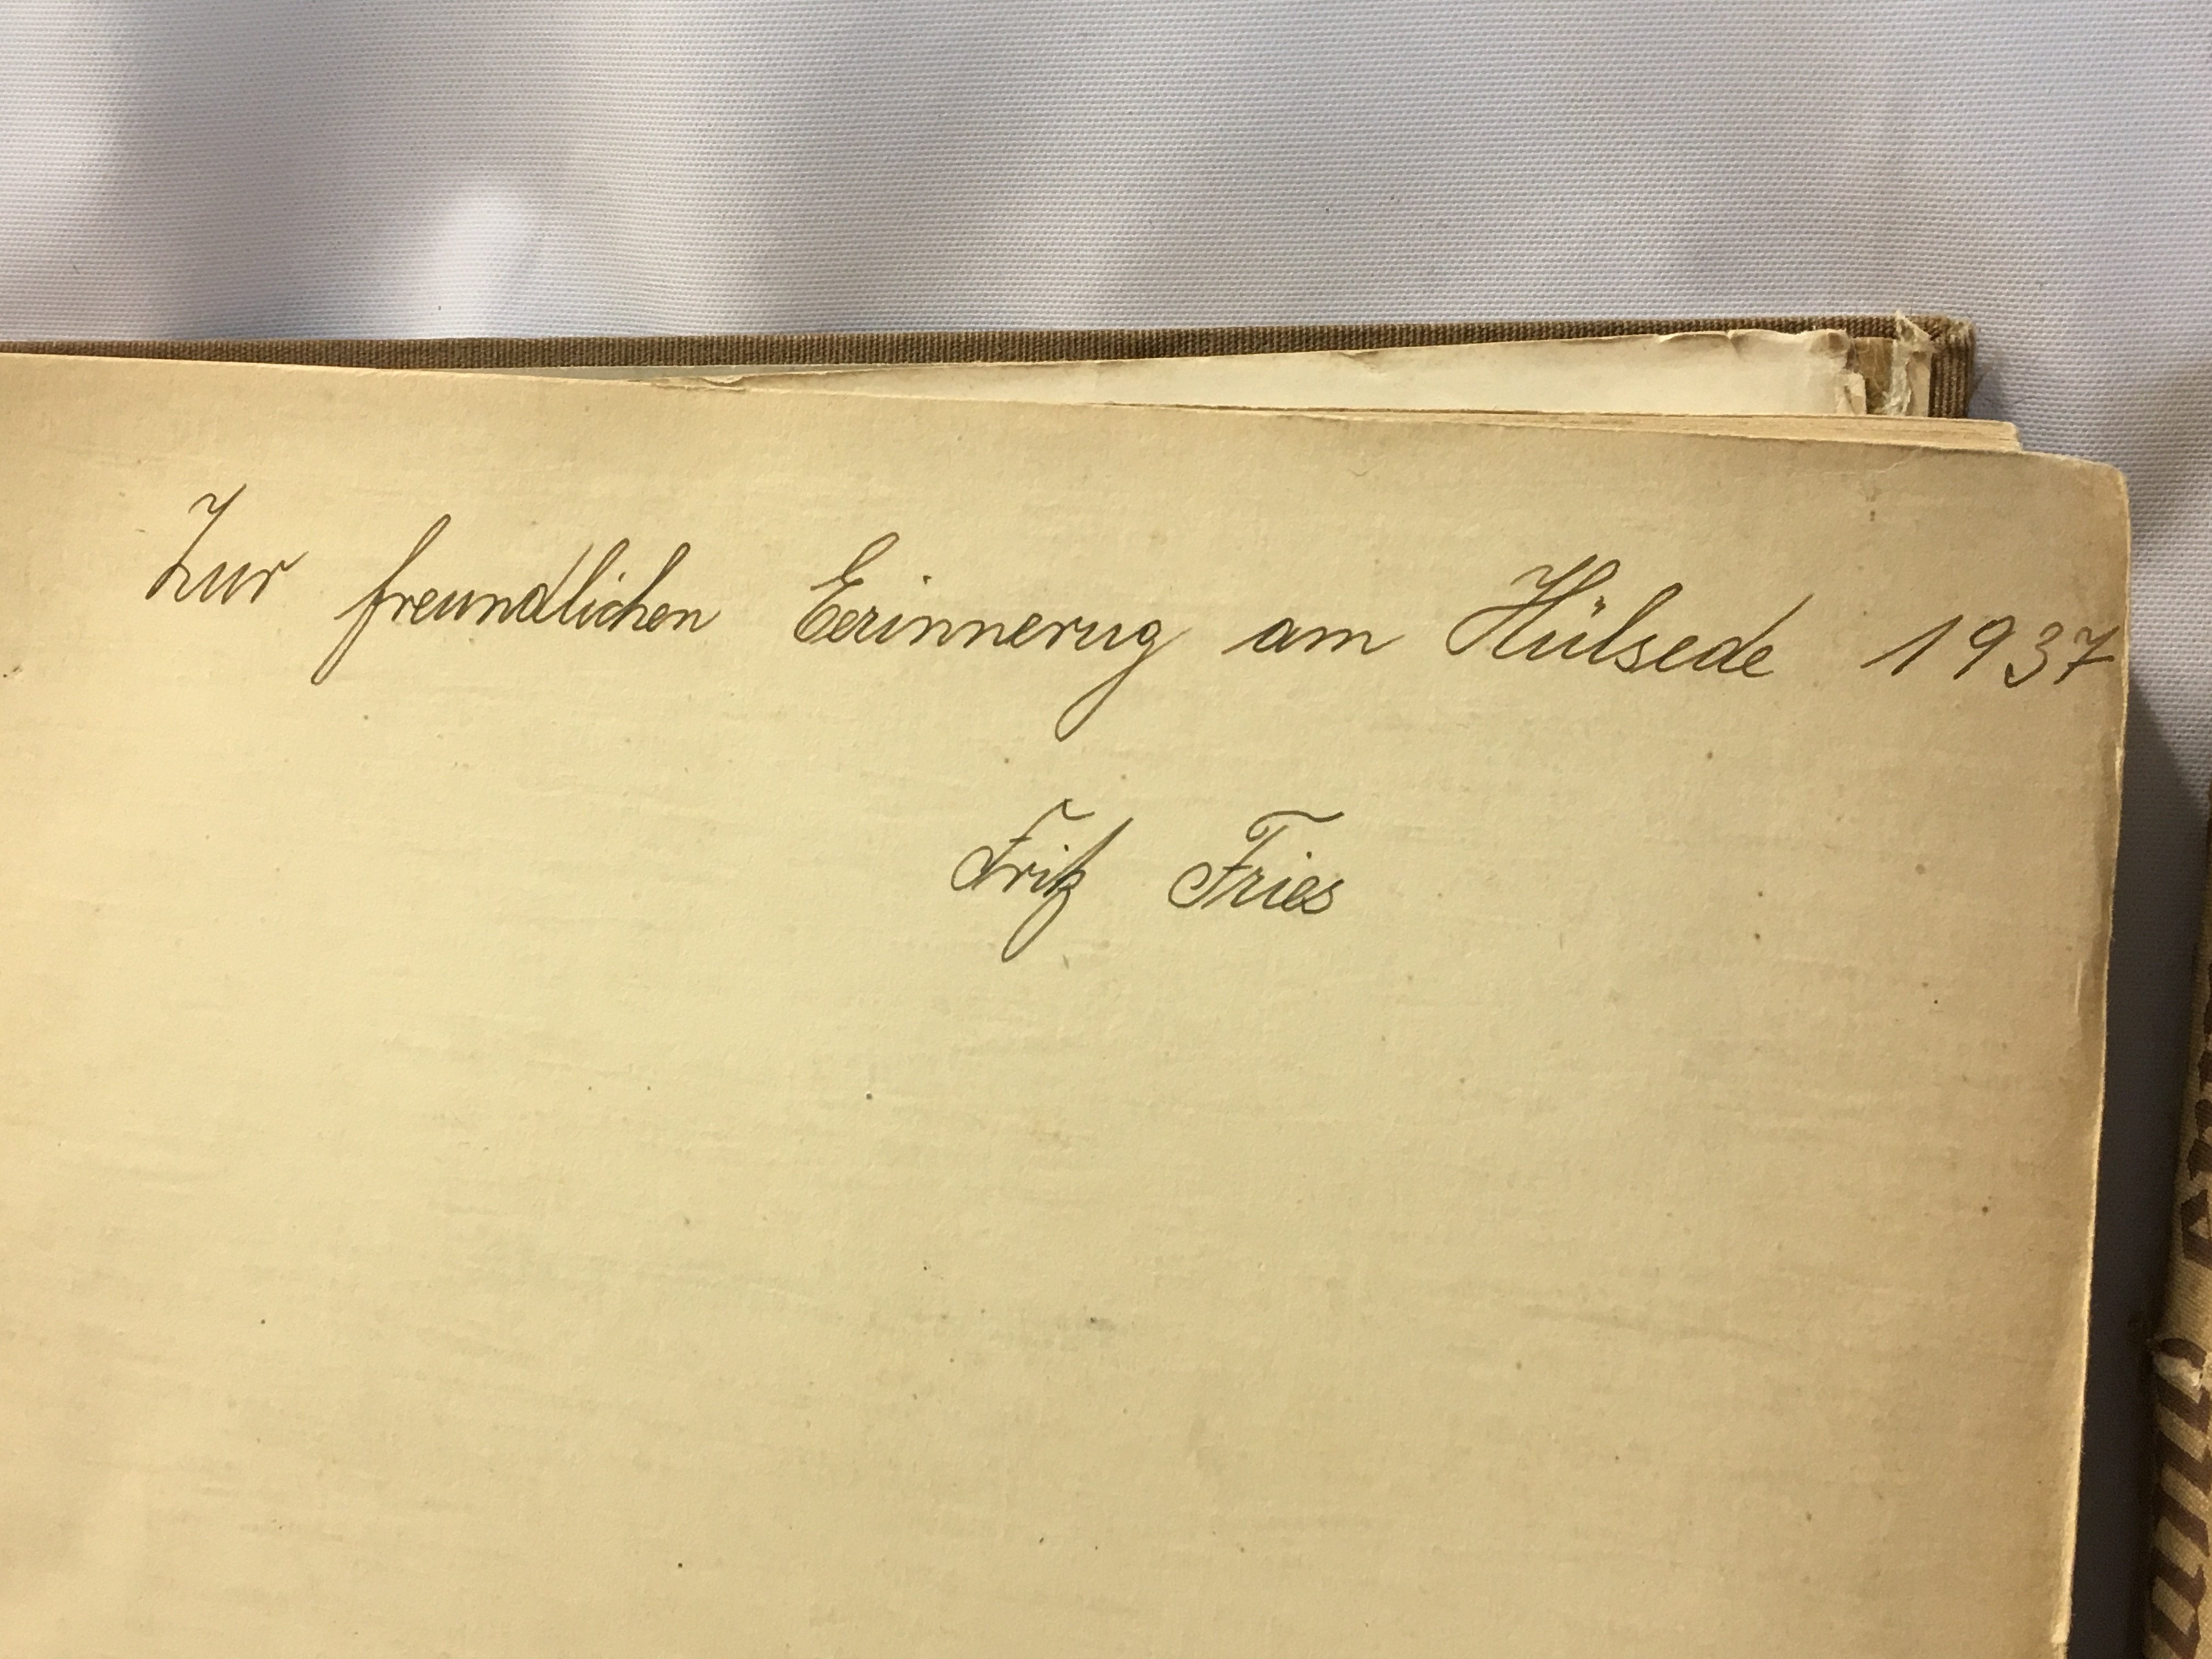 Zur freundlichen Eerinnerug am Hülsede 1937
Fritz Fries